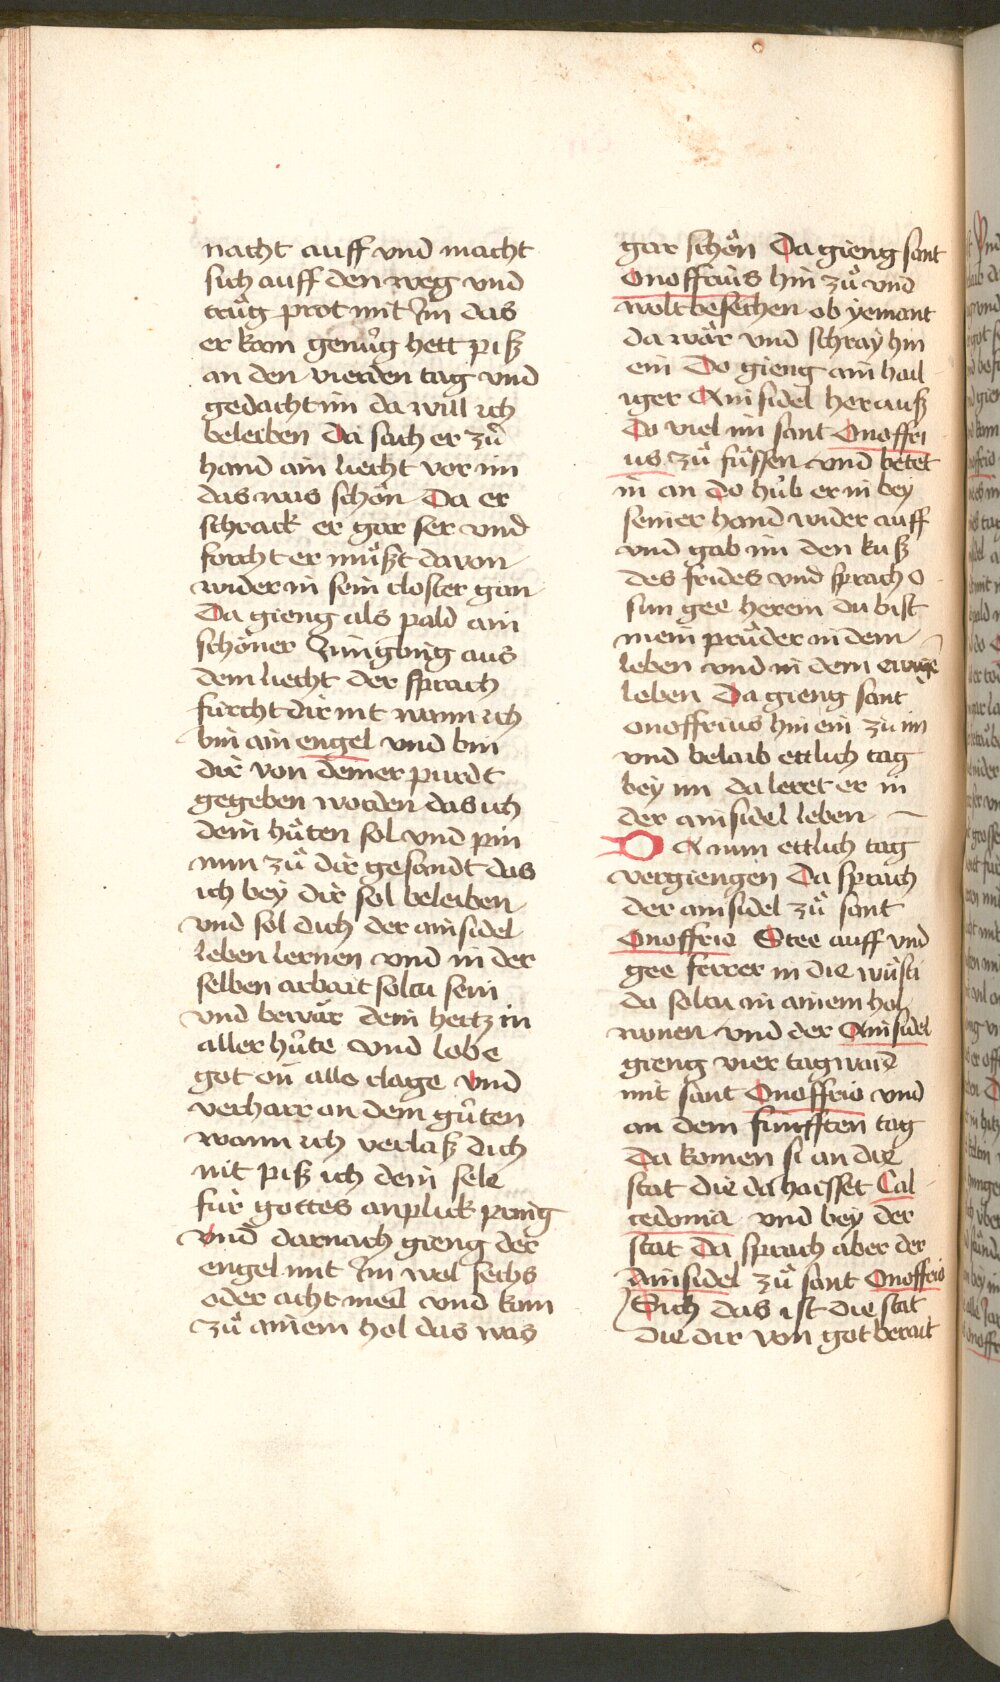 nacht auff vnd macht
sich auff den weg vnd
trůg prot mit Im das
er kam genůg hett piß
an den vierden tag vnd
gedacht im da will ich
beleiben Da sach er zů
hand ain liecht vor im
das was schön Da er
schrack er gar ser vnd
forcht er müßt davon
wider in sein closter gan
Da gieng als pald ain
schöner Jüngling aus
dem liecht der sprach
fürcht dir nit wann ich
bin ain engel vnd bin
dir von deiner purdt
gegeben worden das ich
dein hüten sol vnd pin
nun zů dir gesandt das
ich bey dir sol beleiben
vnd sol dich der ainsidel
leben lernen vnd in der
selben arbait soltu sein
vnd bewär dein hertz in
aller hůte vnd lobe
got on alle clage vnd
verharr an dem gůten
wann ich verlaß dich
nit piß ich dein sele
für gottes anplick pring
vnd darnach gieng der
engel mit Im wol sechs
oder acht meil vnd kam
zů ainem hol das was
gar schön Da gieng sant
Onoffrius hin zů vnd
wolt besechen ob yemant
da wär vnd schray hin
ein Do gieng ain hail
iger Ainsidel herauß
Do viel im sant Onoffri
us zů füssen vnd betet
in an do hůb er in bey
seiner hand wider auff
vnd gab im den kuß
des frides vnd sprach O
sun gee herein du bist
mein průder in dem
leben vnd in dem ewigē
leben Da gieng sant
onoffrius hin ein zu im
vnd belaib ettlich tag
bey im da leret er in
der ainsidel leben
DA nun ettlich tag
vergiengen Da sprach
der ainsidel zů sant
Onoffrio Stee auff vnd
gee ferrer in die wüsti
da soltu in ainem hol
wonen vnd der Ainsidel
gieng vier tagwaid
mit sant Onoffrio vnd
an dem fünfften tag
Da komen si an die
stat die da haisset Cal
cedonia vnd bey der
stat Da sprach aber der
Ainsidel zů sant Onoffrio
Sich das ist die stat
die dir von got berait